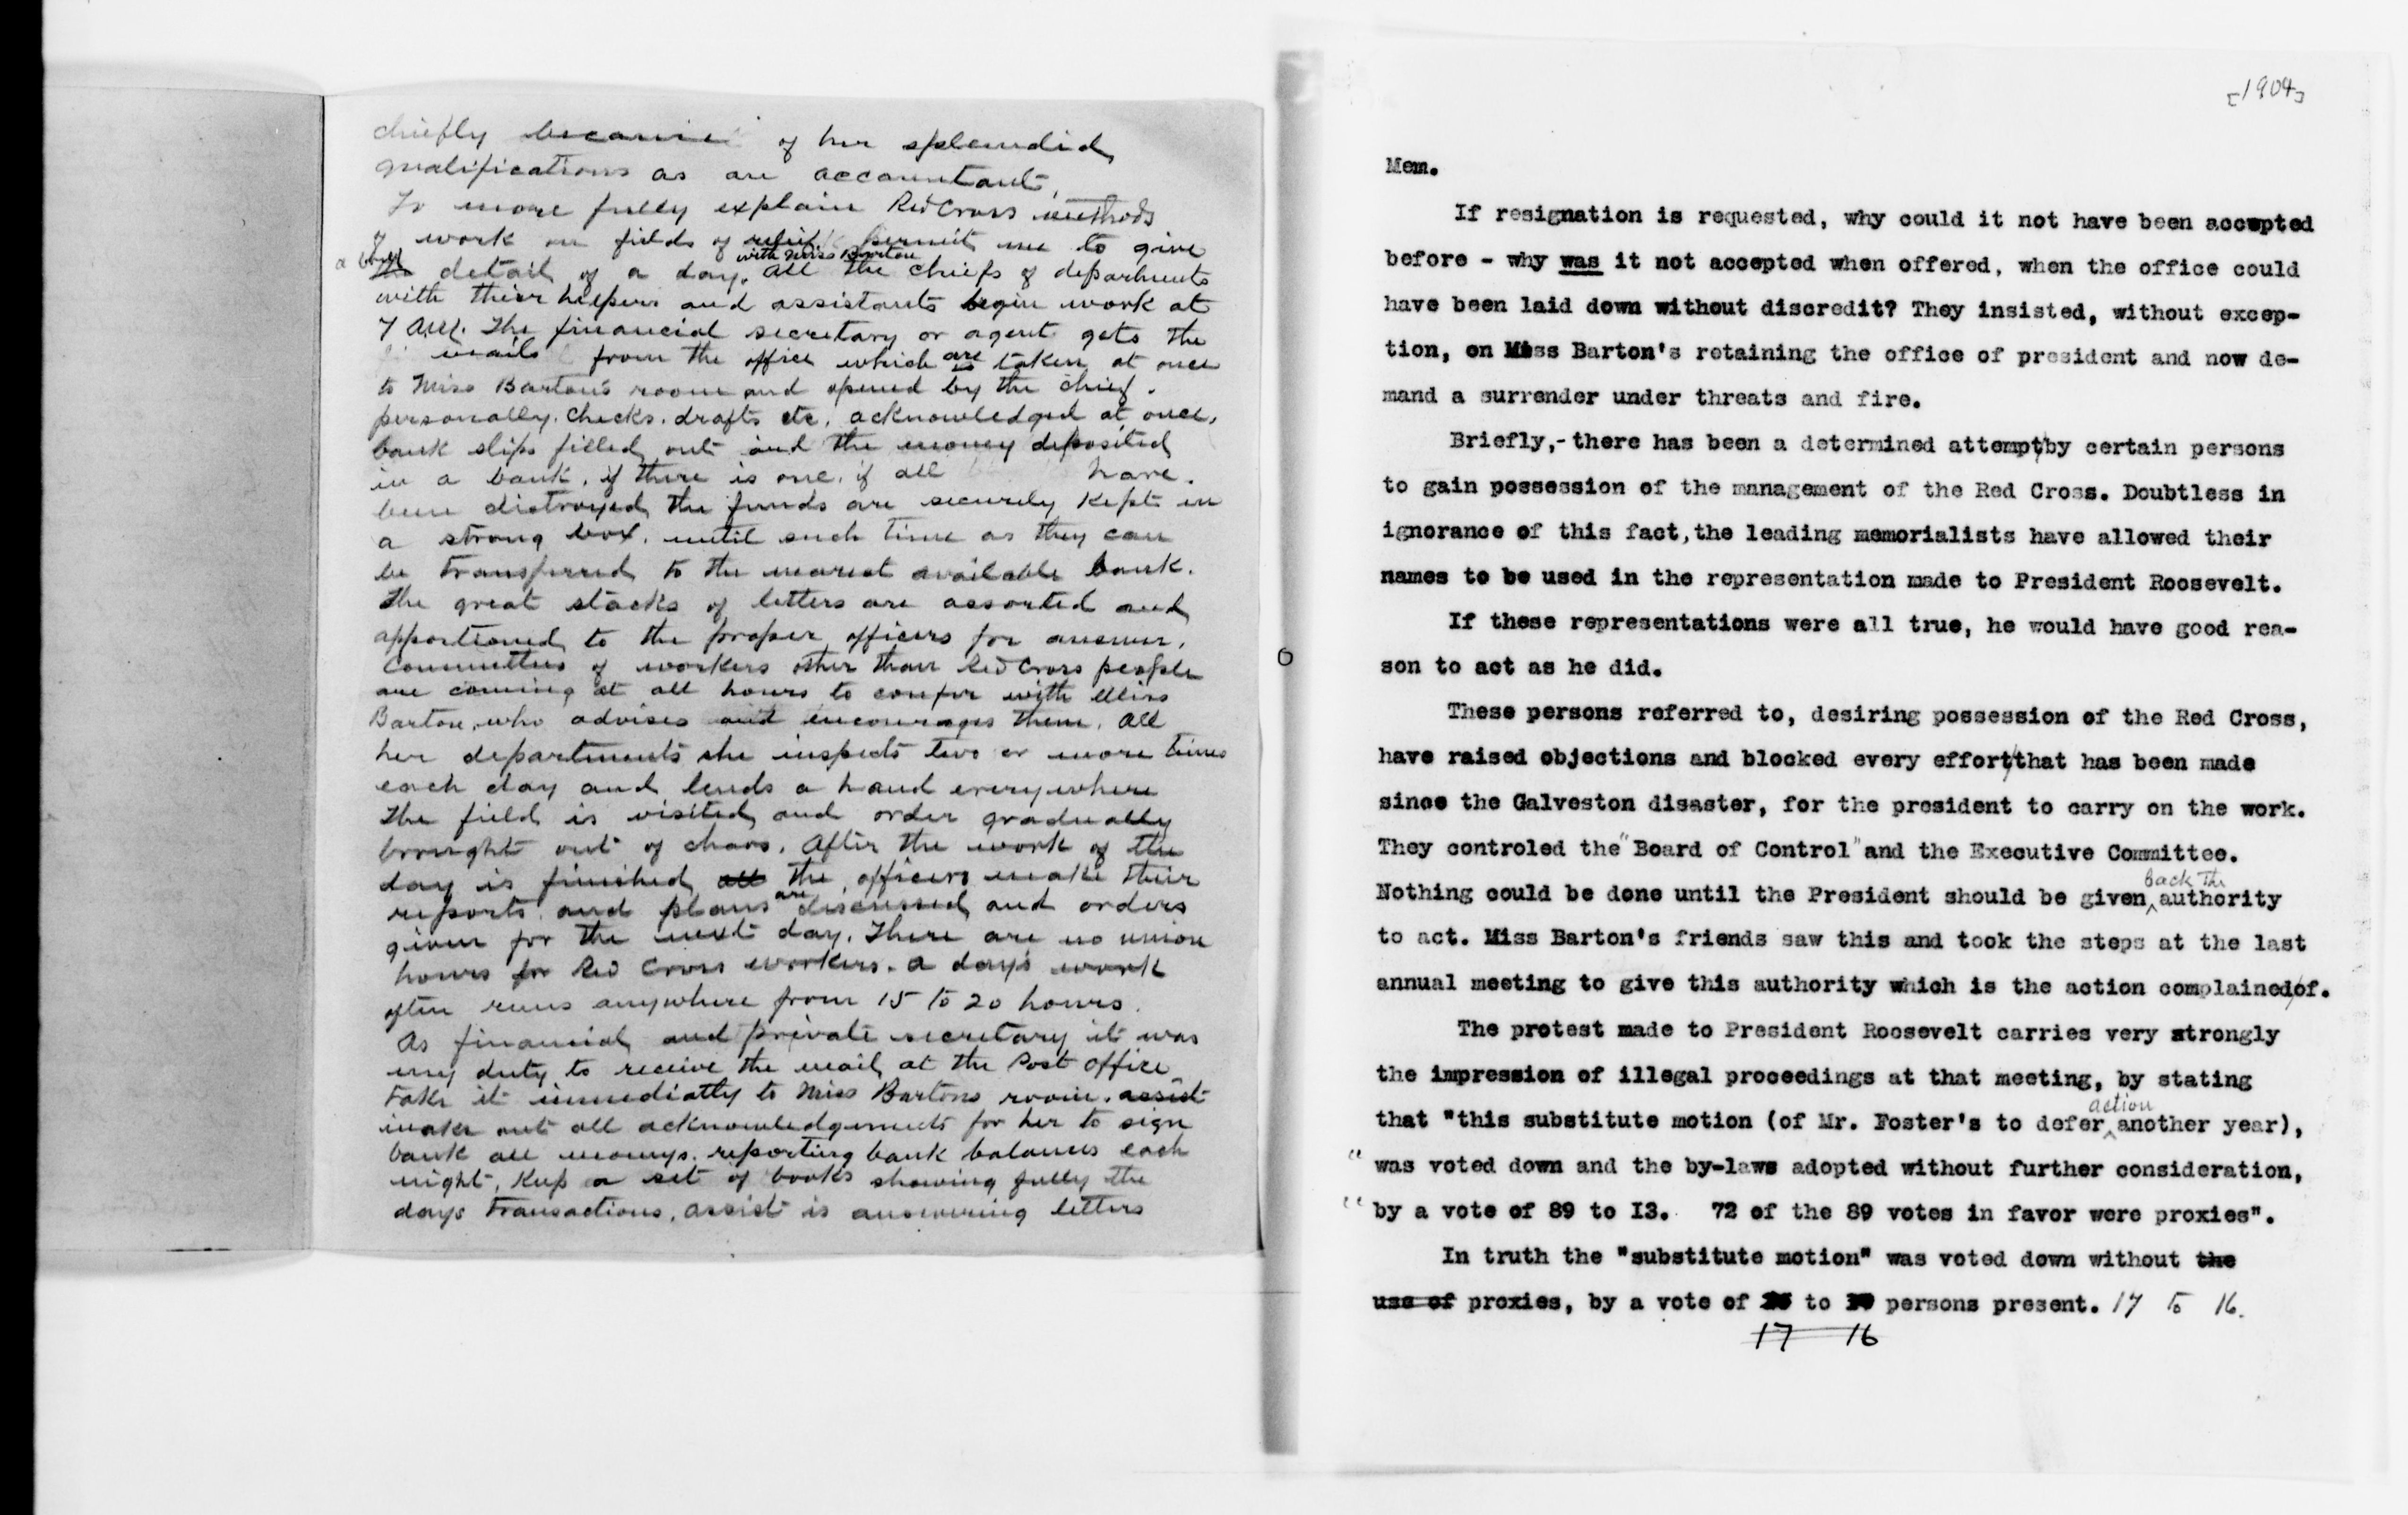 chiefly because of her splendid
qualifications as an accountant,
To more fully explain Red Cross methods
of work on fields of relief permit me to give
a brief
with Miss Barton
the detail of a day. All the chiefs of departments
with their helpers and assistants begin work at
7 A.M. The financial secretary or agent gets the
mails from the office which are is taken at once
to Miss Barton's room and opened by the chief.
personally. Checks. drafts etc. acknowledged at once,
bank slips filled out and the money deposited
in a bank, if there is one, if all have.
been distroyed the funds are securely kept in
a strong box. until such time as they can
be transferred to the nearest available bank.
The great stacks of letters are assorted and
apportioned to the proper officers for answer.
Committees of workers other than Red Cross people
are coming at all hours to confer with Miss
Barton, who advises and encourages them. All
her departments she inspects two or more times
each day and lends a hand everywhere
The field is visited and order gradually
brought out of chaos. After the work of the
day is finished all the officers make their
reports and plans are discussed and orders
given for the next day. There are no union
hours for Red Cross workers. a day's work
often runs anywhere from 15 to 20 hours.
As financial and private secretary it was
my duty to receive the mail at the Post office
take it immediatly to Miss Bartons room. assist
make out all acknowledgements for her to sign
bank all moneys. reporting bank balances each
night, Keep a set of books showing fully the
days transactions, assist is answering letters
[1904]
Mem.
If resignation is requested, why could it not have been accepted
before - why was it not accepted when offered, when the office could
have been laid down without discredit? They insisted, without excep-
tion, on Miss Barton's retaining the office of president and now de-
mand a surrender under threats and fire.
Briefly,- there has been a determined attempt/by certain persons
to gain possession of the management of the Red Cross. Doubtless in
ignorance of this fact, the leading memorialists have allowed their
names to be used in the representation made to President Roosevelt.
If these representations were all true, he would have good rea-
son to act as he did.
These persons referred to, desiring possession of the Red Cross,
have raised objections and blocked every effort/that has been made
since the Galveston disaster, for the president to carry on the work.
They controled the "Board of Control" and the Executive Committee.
back the
Nothing could be done until the President should be given ^ authority
to act. Miss Barton's friends saw this and took the steps at the last
annual meeting to give this authority which is the action complained/of.
The protest made to President Roosevelt carries very strongly
the impression of illegal proceedings at that meeting, by stating
action
that "this substitute motion (of Mr. Foster's to defer ^ another year),
" was voted down and the by-laws adopted without further consideration,
" by a vote of 89 to I3. 72 of the 89 votes in favor were proxies".
In truth the "substitute motion" was voted down without the
use of proxies, by a vote of to persons present. 17 to 16.
17 16